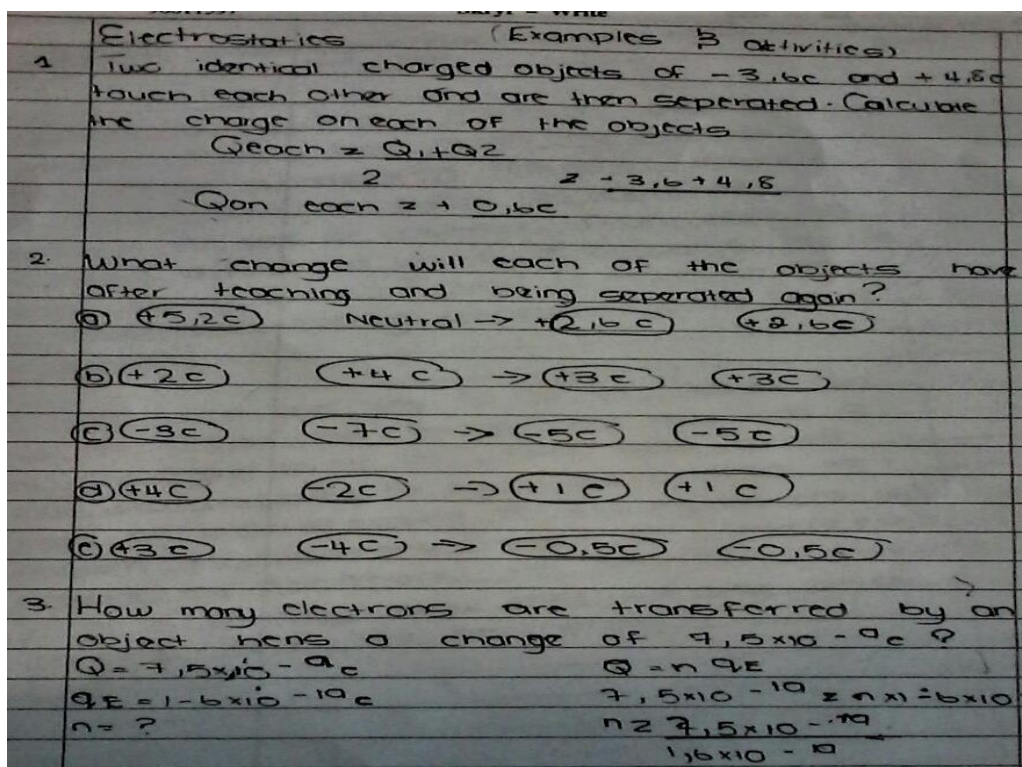 Electrostatics (Examples & activities)
1 Two identical charged objects of -3,6c and +4,8c
touch each other and are then seperated. Calculate
the charge on each of the objects
Qeach = Q1+Q2
2 = -3,6+4,8
Q on each = + 0,6c
2. What change will each of the objects have
after teaching and being seperated again?
(a) +5,2c Neutral -> +2,6c +2,6c
(b) +2c +4c -> +3c +3c
(c) -3c -7c -> -5c -5c
(d) +4c -2c -> +1c +1c
(e) +3c -4c -> -0,5c -0,5c
3. How many electrons are transferred by an
object hens a change of 7,5x10 -9c ?
Q = 7,5x10 -9c Q = n qE
qE = 1-6x10 -19c 7,5x10 -19 = n x1-6x10
n = ? n = 7,5x10 -19
1,6x10 - 19